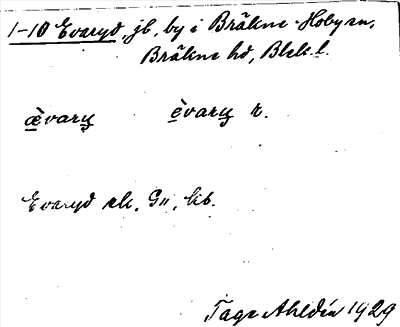 1-10 Evaryd, jb, by i Bräkne-Hoby sn,
Bräkne hd, Blek. l.
æ̀varʉ èvarʉ r.
Evaryd sk, Gu, bib.
Tage Ahldén 1929